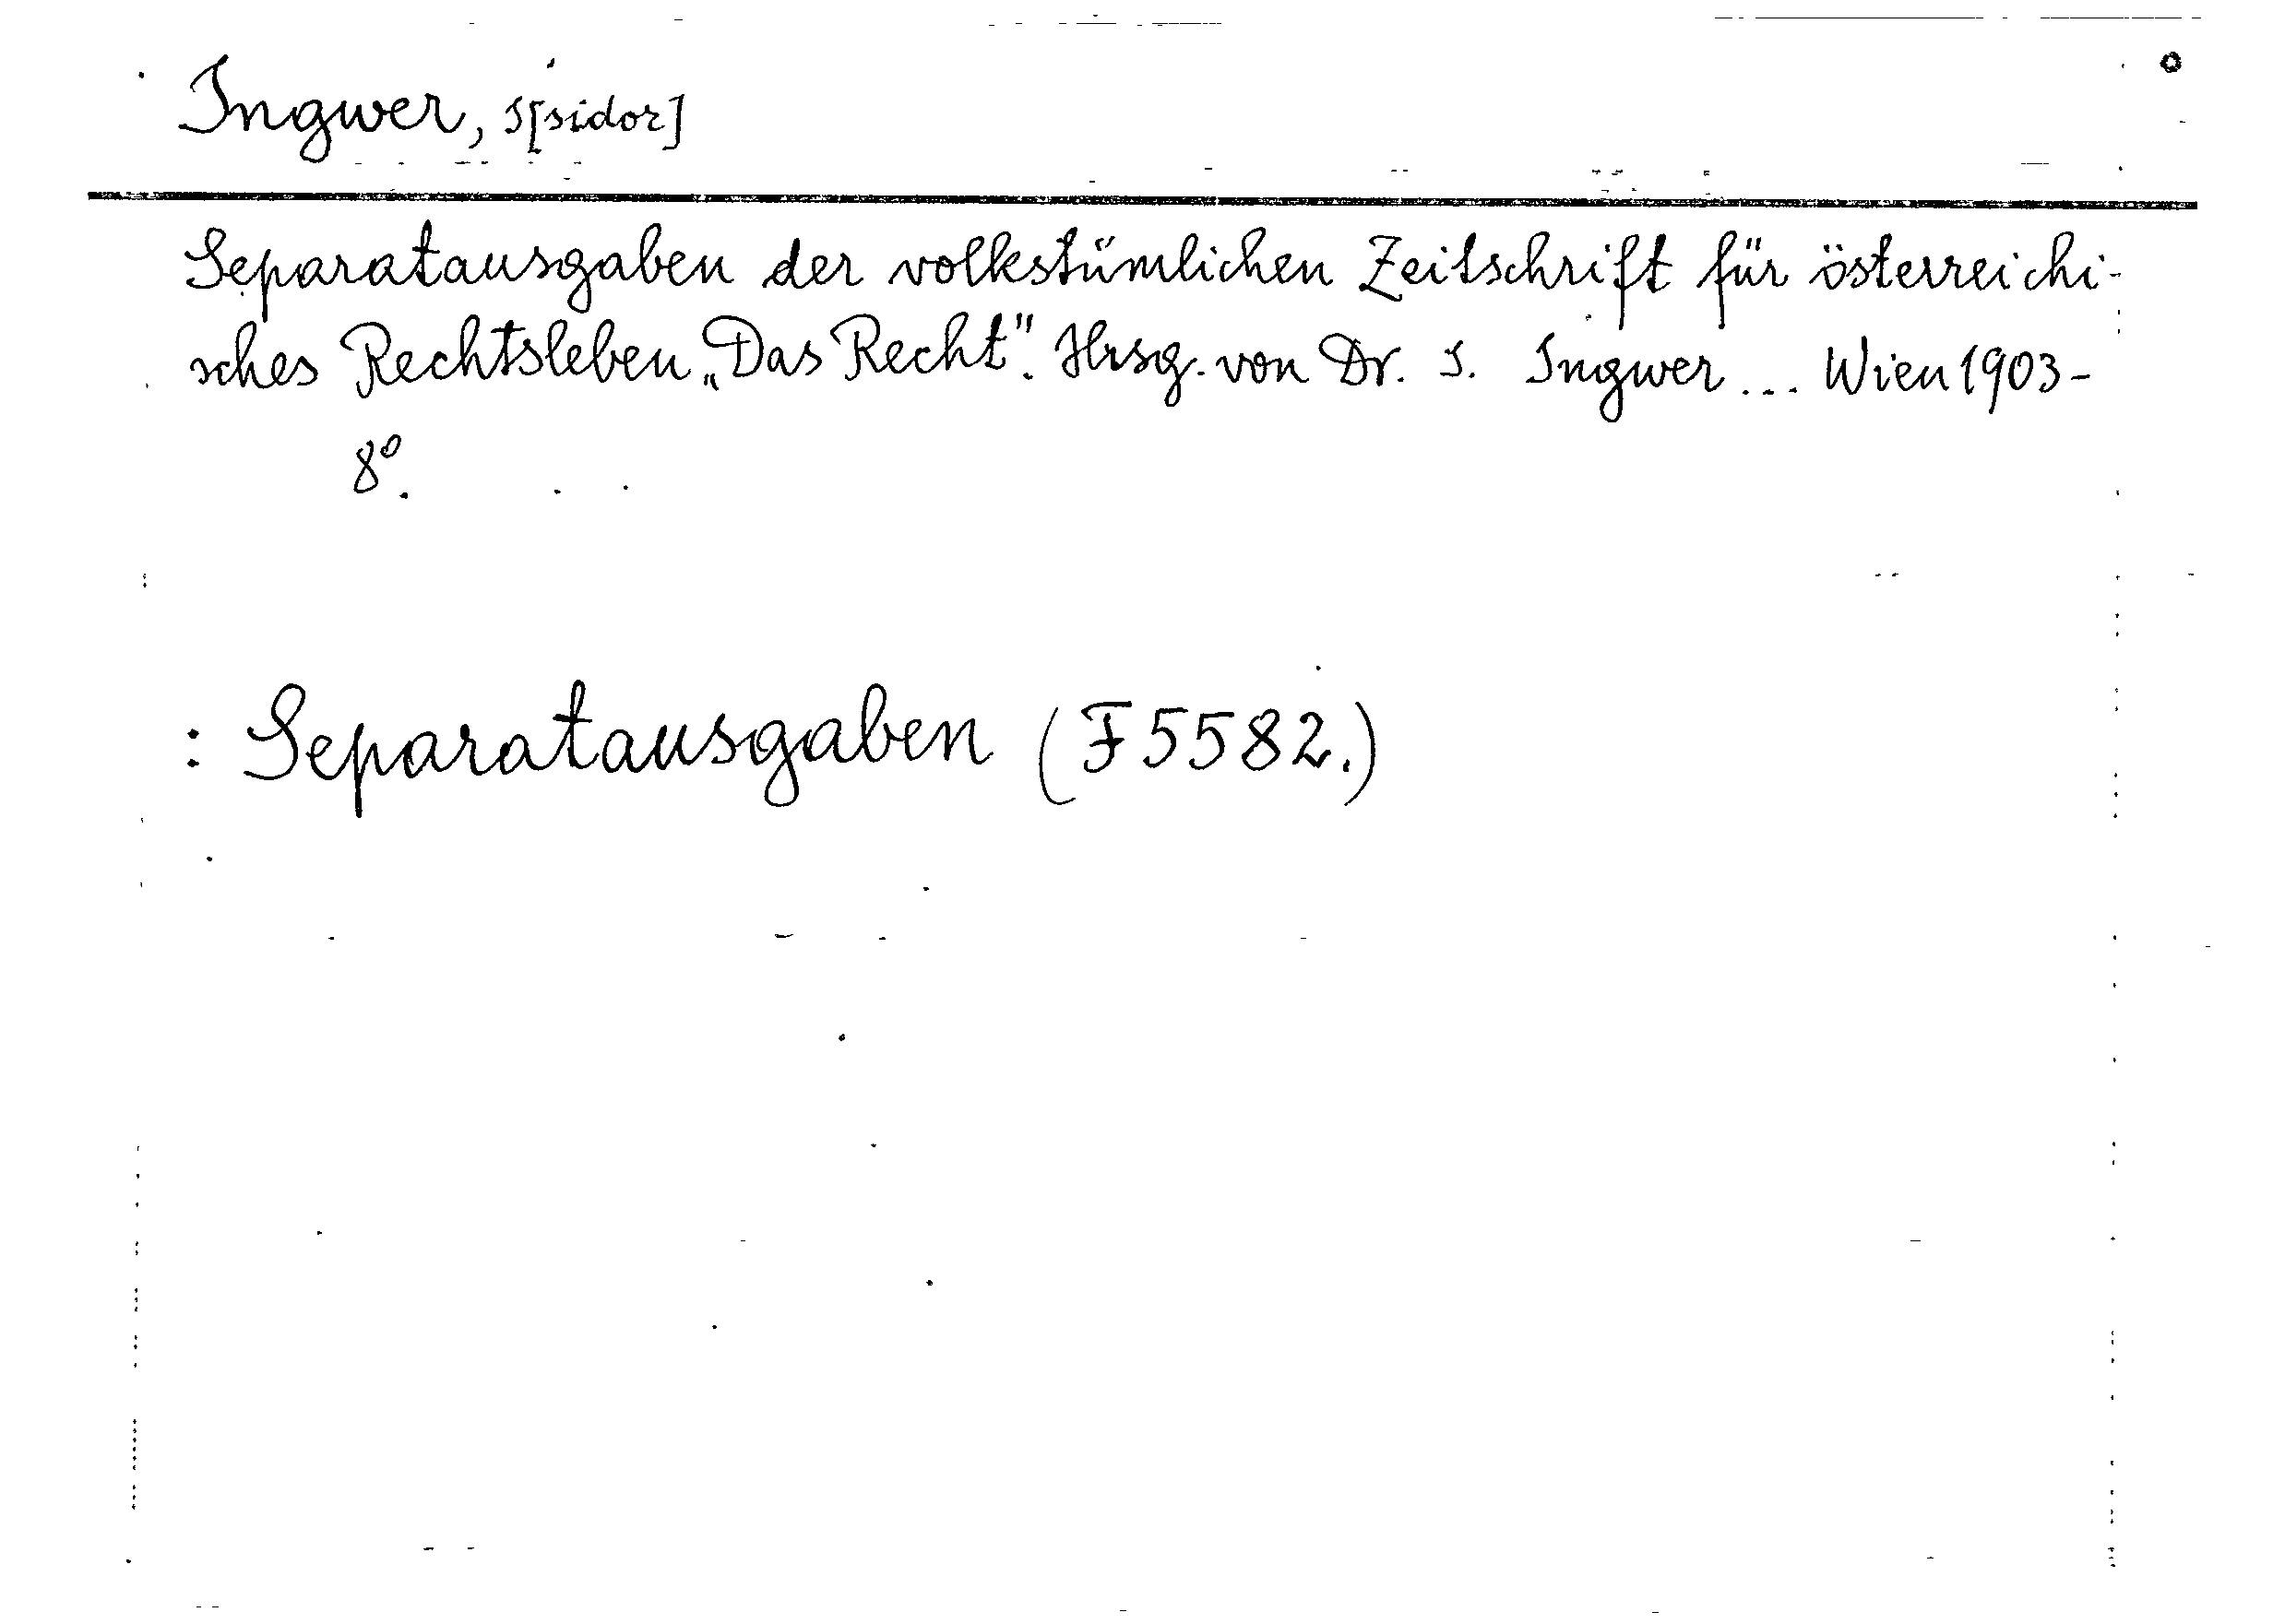 Ingwer, I[sidor]
Separatausgaben der volkstümlichen Zeitschrift für österreichi-
sches Rechtsleben „Das Recht". Hrsg. von Dr. I. Ingwer ... Wien 1903-
8°.
: Separatausgaben (F 5582.)